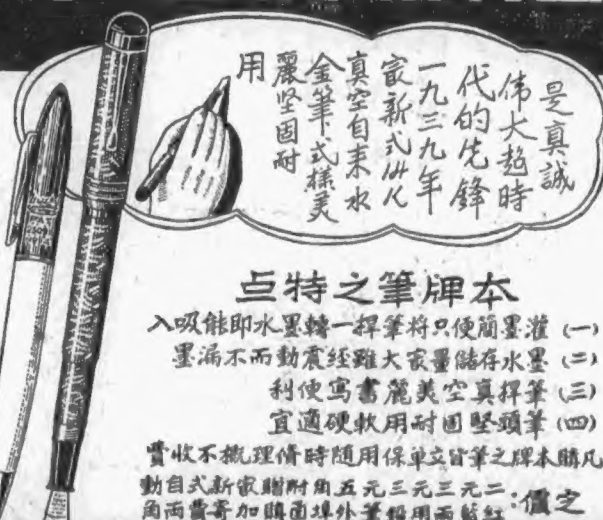 是真誠
伟大超時
代的先鋒
一九三九年
㝡新式
真空自来水
金筆式樣美
麗坚固耐
用
本牌筆之特点
(一) 灌墨簡便只將筆捍一轉墨水即能吸入
(二) 墨水存儲量㝡大雖经震動而不漏墨
(三) 筆捍真空美麗書寫便利
(四) 筆頭堅固耐用軟硬適宜
凡購本牌之筆皆立單保用随時修理概不收費
定價:二元三元三元五角附贈㝡新式自動
紅藍兩用鉛筆外埠函購加寄費兩角